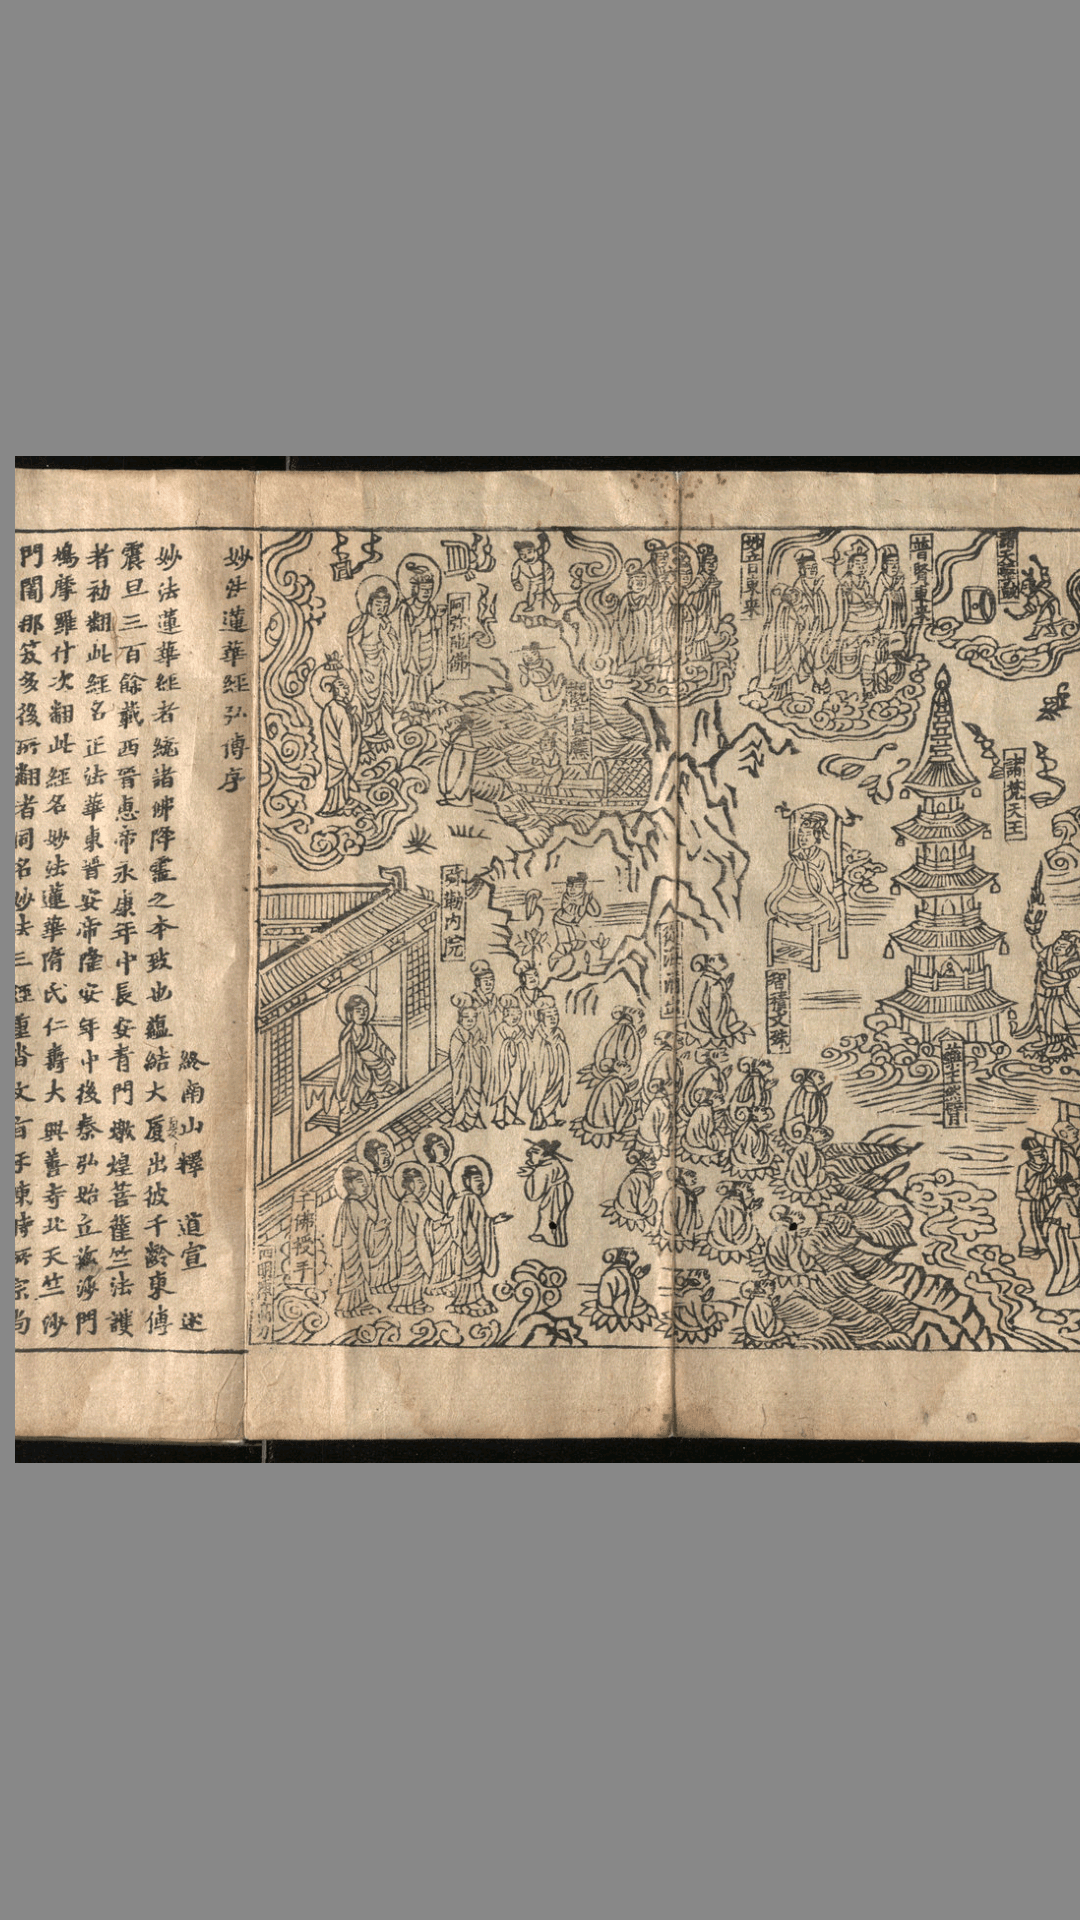 普賢東來
妙音東來
諸梵天王
藥王然臂
智積文殊
阿弥陁佛
弥勒内院
千佛授手
妙法蓮華經弘傳序
終南山釋 道宣 述
妙法蓮華經者統諸佛降靈之本致也蘊結大厦出彼千齡東傳
震旦三百餘載西晉惠帝永康年中長安青門燉煌菩薩竺法護
者初翻此經名正法華東晉安帝隆安年中後秦弘始丘兹沙門
鳩摩羅什次翻此經名妙法蓮華隋氏仁壽大興善寺北天竺沙
門闍那笈多後所翻者同名妙法三經重沓文旨互陳時所宗尚